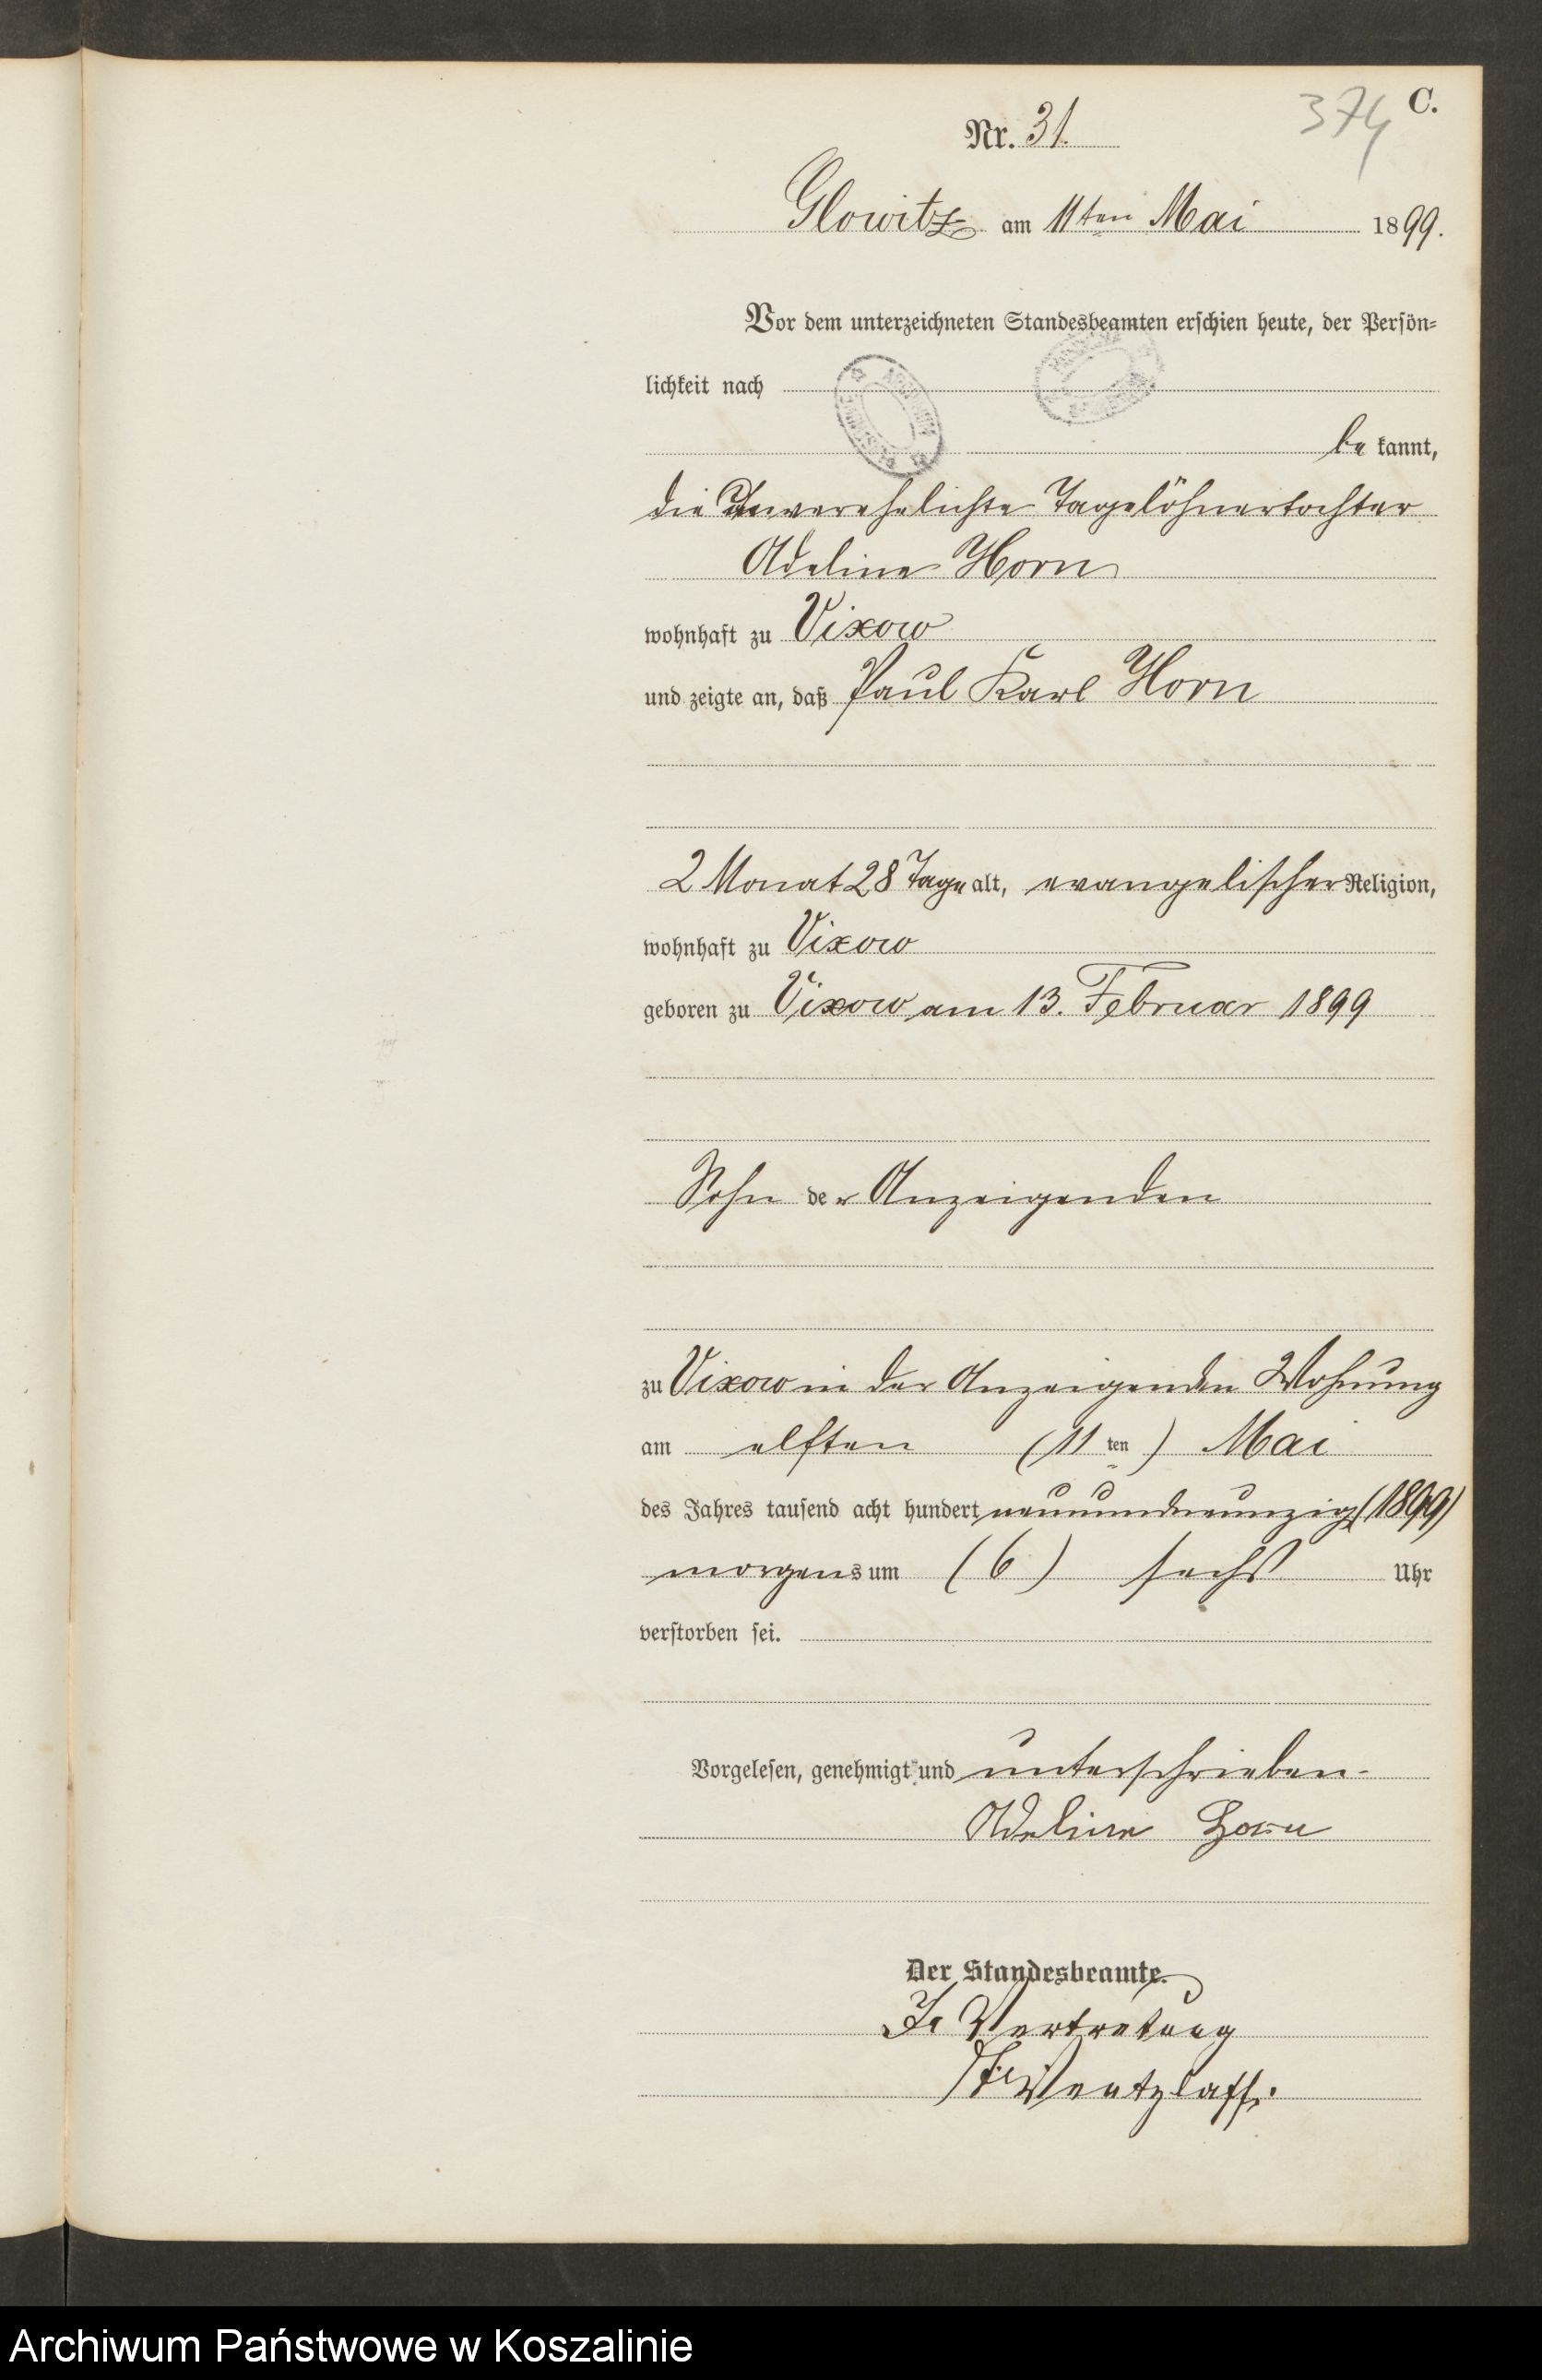 C.
374
Nr. 31.
Glowitz am 11ten Mai 1899.
Vor dem unterzeichneten Standesbeamten erschien heute, der Persön-
lichkeit nach
be kannt,
die Unverehelichte Tagelöhnertochter
Adeline Horn
wohnhaft zu Vixow
und zeigte an, daß Paul Karl Horn
2 Monat 28 Tage alt, evangelischer Religion,
wohnhaft zu Vixow
geboren zu Vixow am 13. Februar 1899
Sohn der Anzeigenden
zu Vixow in der Anzeigenden Wohnung
am elften (11ten) Mai
des Jahres tausend acht hundert neunundneunzig (1899)
morgens um (6) sechs Uhr
verstorben sei.
Vorgelesen, genehmigt und unterschrieben.
Adeline Horn
Der Standesbeamte.
In Vertretung
Wentzlaff.
Archiwum Państwowe w Koszalinie